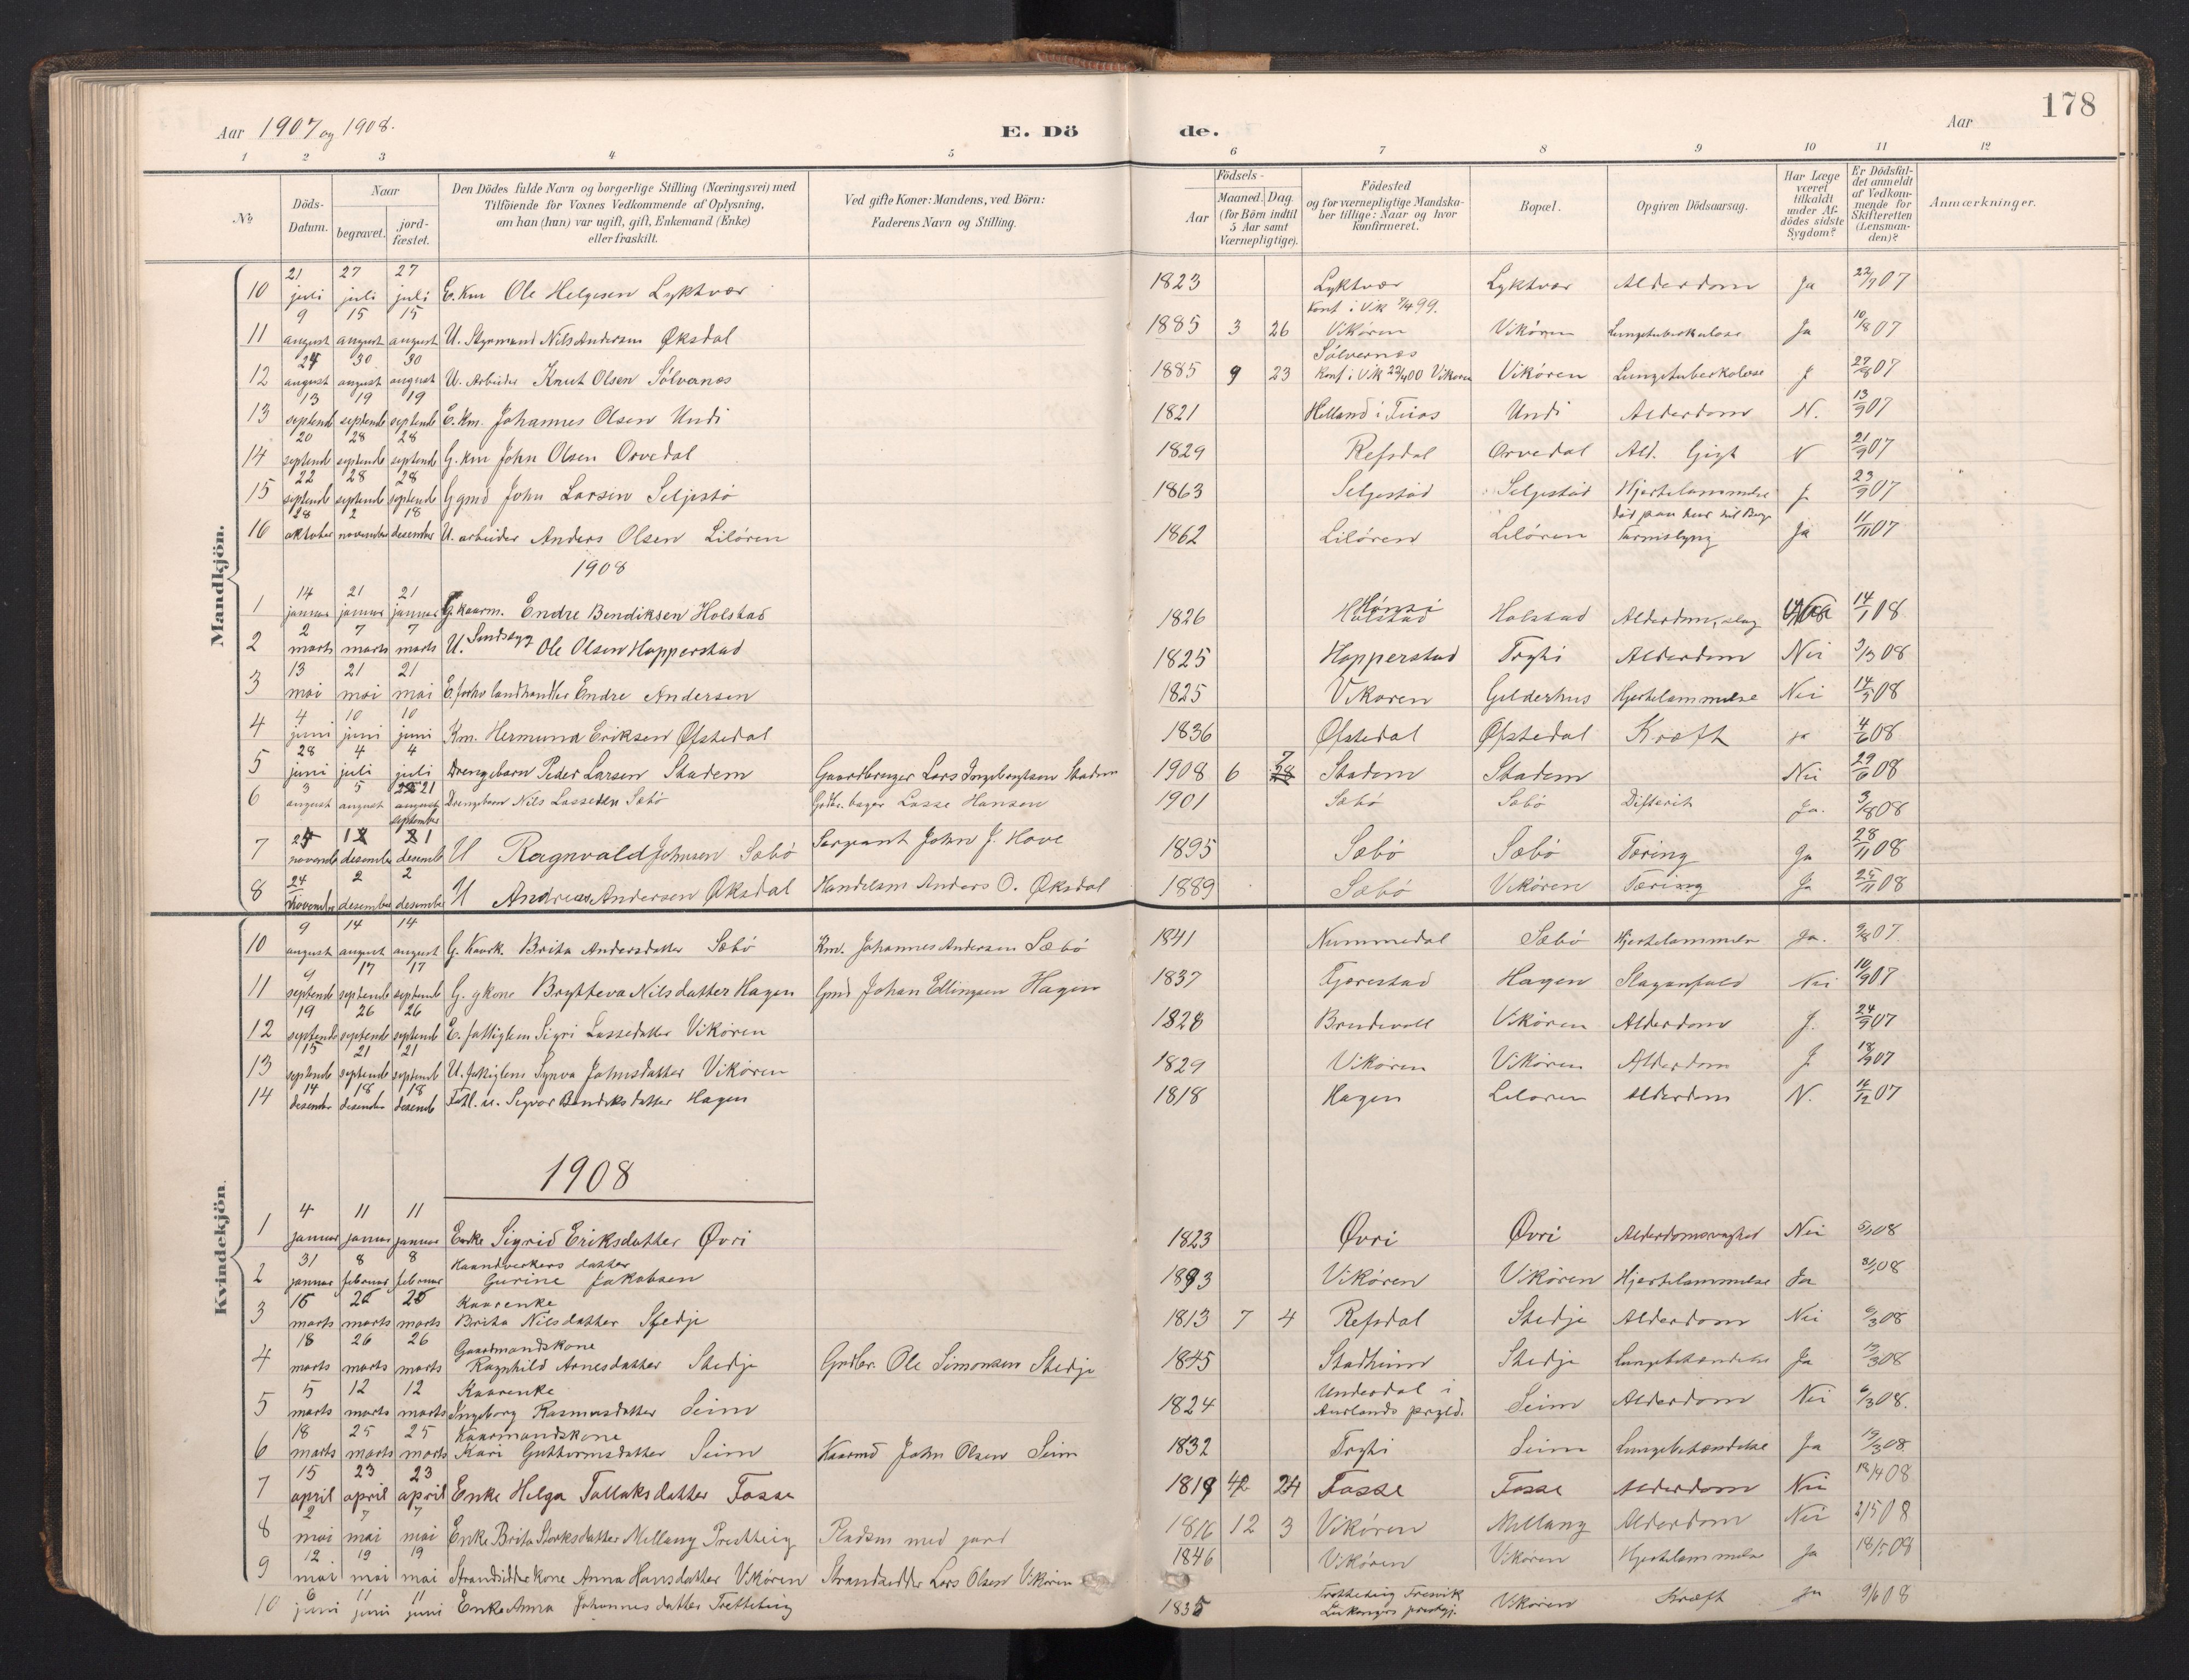 Aar 1907 og 1908.
E. Dö
de.
Aar
178
1 2 3 4 5 6 7 8 9 10 11 12
No
Döds-Datum.
Naar
begravet.
jord-fæstet.
Den Dödes fulde Navn og borgerlige Stilling (Næringsvei) med
Tilföiende for Voxnes Vedkommende af Oplysning,
om han (hun) var ugift, gift, Enkemand (Enke)
eller fraskilt.
Ved gifte Koner: Mandens, ved Börn:
Faderens Navn og Stilling.
Födsels-
Aar
Maaned. Dag.
(for Börn indtil
5 Aar samt
Værnepligtige).
Födested
og for værnepligtige Mandska-
ber tillige: Naar og hvor
konfirmeret.
Bopæl.
Opgiven Dödsaarsag.
Har Læge
været
tilkaldt
under Af-
dödes sidste
Sygdom?
Er Dödsfal-
det anmeldt
af Vedkom-
mende for
Skifteretten
(Lensman-
den)?
Anmærkninger.
Mandkjön.
10 21 juli 27 juli 27 juli E. Km Ole Helgesen Lyktvor 1823 Lyktvor Lyktvor Alderdom Ja 22/7 07
11 9 august 15 august 15 august U. Styrmand Nils Andersen Øksdal 1885 3 26 Konf i Vik 99. Vikören Vikören Lungetuberkulose Ja 10/8 07
12 24 august 30 august 30 august U. Arbeider Knut Olsen Sölvernes 1885 9 23 Sölvernes Konf i Vik 00 Vikören Lungetuberkolose J 27/8 07
13 13 septembe 19 septembe 19 septembe E. Km. Johannes Olsen Undi 1821 Helland i Undi Alderdom N. 13/9 07
14 20 septembe 28 septembe 28 septembe G. Km John Olsen Orvedal 1829 Refsdal Orvedal Ald. Gigt N 21/9 07
15 22 septembe 28 septembe 28 septembe G gmd John Larsen Seljestö 1863 Seljestad Seljestad Hjertelammelse J. 23/9 07
16 28 oktober 2 november 18 desember U. arbeider Anders Olsen Lilören 1862 Lilören Lilören Tarmslyng Ja 11/11 07
1908
1 14 januar 21 januar 21 januar G. kaarm. Endre Bendiksen Holstad 1826 Holstad Alderdom, slag 14/1 08
2 2 marts 7 marts 7 marts U. Sindssyg Ole Olsen Hopperstad 1825 Hopperstad Tryti Alderdom Nei 3/3 08
3 13 mai 21 mai 21 mai E. forhv landhandler Endre Andersen 1825 Vikoren Gilderhus Hjertelammelse Nei 14/5 08
4 4 juni 10 juni 10 juni Km. Hermund Eriksen Øfstedal 1836 Øfstedal Øfstedal Kræft ja 4/6 08
5 28 juni 4 juli 4 juli Drengebarn Peder Larsen Stadem Gaardbruger Lars Ingebrigtsen Stadem 1908 6 7 Stadem Stadem Nei 29/6 08
6 3 august 5 august 21 september Drengebarn Nils Lassesen Sæbö Lasse Hansen 1901 Sæbö Sæbö Difterit Ja. 3/8 08
7 24 novembe desember desembe U Ragnvald Johnsen Sæbö Sergeant John J. Hove 1895 Sæbö Sæbö Tæring Ja 28/11 08
8 24 november 2 desember 2 desember U Andreas Andersen Øksdal Handelsm Anders O. Øksdal 1889 Sæbö Vikören Tæring Ja 25/11 08
Kvindekjön.
10 9 august 14 august 14 august G. Kaark. Brita Andersdatter Sæbö Km. Johannes Andersen Sæbö 1841 Nummedal Sæbö Hjertelammelse Ja. 9/8 07.
11 9 septembe 17 septembe 17 septembe G. gkone Brytteva Nilsdatter Hagen Gmd Johan Ellingsen Hagen 1837 Tjorestad Hagen Slaganfald Nei 10/9 07
12 19 septembe 26 septembe 26 septembe E. fattiglem Sigri Lassedatter Vikören 1828 Brudevoll Vikören Alderdom J. 24/9 07
13 15 septembe 21 septembe 21 septembe U. fattiglem Synva Johnsdatter Vikören 1829 Vikören Vikören Alderdom J 18/9 07
14 14 desember 18 desember 18 desembe Fatl. u. Sigvor Bendiksdatter Hagen 1818 Hagen Lilören Alderdom N. 07
1908
1 4 januar 11 januar 11 januar Enke Sigrid Eriksdatter Øvri 1823 Øvri Øvri Alderdomsvaghed Nei 5/1 08
2 31 januar 8 februar 8 februar Haandverkers datter Gurine Jakobsen 1893 Vikören Vikören Hjertelammelse Ja 08
3 16 marts marts marts Kaarenke Brita Nilsdatter Stedje 1813 7 4 Refsdal Stedje Alderdom Nei 08
4 18 marts 26 marts 26 marts Gaardmandskone Ragnhild Arnesdatter Stedje Grdbr. Ole Simonsen Stedje 1845 Stadheim Stedje Lungebetændelse Ja 08
5 5 marts 12 marts 12 marts Kaarenke Ingeborg Rasmusdatter Seim 1824 Underdal i Aurlands prgld. Seim Alderdom Nei 6/3 08.
6 18 marts 25 marts 25 marts Kaarmandskone Kari Guttormsdatter Seim Kaarmd John Olsen Seim 1832 Tryti Seim Lungebetændelse Ja 08
7 15 april 23 april 23 april Enke Helga Tollaksdatter Fosse 1819 24 Fosse Fosse Alderdom Nei 08
8 2 mai 7 mai 7 mai Enke Brita Sjursdatter Mellang Pladsm med jord 1816 12 3 Vikören Mellang Alderdom Nei 2/5 08
9 12 mai 19 mai 19 mai Strandsidderkone Anna Hansdatter Vikören Strandsidder Lars Olsen Vikören 1846 Vikören Vikören Hjertelammelse Ja 18/5 08
10 6 juni 11 juni 11 juni Enke Anna Johannesdatter Tretteteig 1835 Tretteteig Fresvik Leikanger prestgj. Vikören Kræft Ja 9/6 08